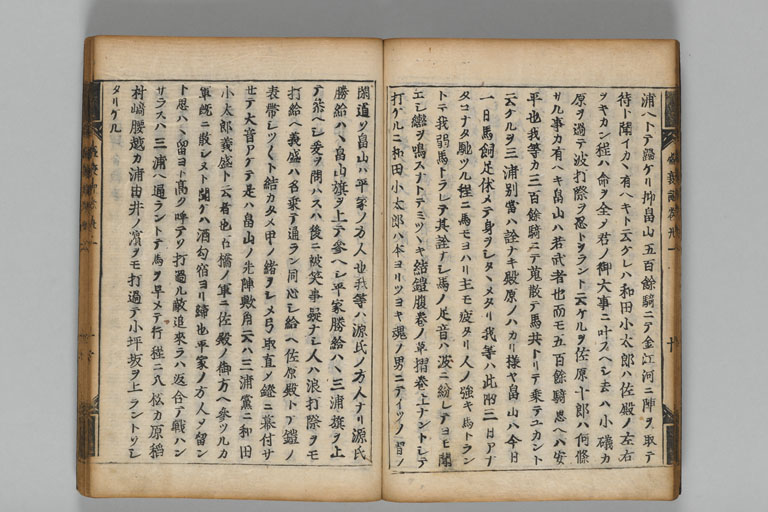 浦ヘトテ帰ケリ抑畠山五百餘騎ニテ金江河ニ陣ヲ取テ
待ト聞イカヽ有ヘキト云ケレハ和田小太郎ハ佐殿ノ左右
ヲキカン程ハ命ヲ全ノ君ノ御大事ニ叶スヘシ去ハ小磯カ
原ヲ過テ波打際ヲ忍トヲラント云ケルヲ佐原十郎ハ何條
サル事カ有ヘキ畠山ハ若武者也而モ五百餘騎思ヘハ安
平也我等カ三百餘騎ニテ蒐散テ馬共トリテ乗テユカント
云ケルヲ三浦別當ハ詮ナキ殿原ノハカリ様ヤ畠山ハ今日
一日馬飼足休メテ身ヲシタヽメタリ我等ハ此両三日アナ
タコナタ馳ツル程ニ馬モヨハリ主モ疲タリ人ノ強キ馬トラン
トテ我弱馬トラレテ其詮ナシ馬ノ足音ハ波ニ紛レテヨモ聞
エシ轡ヲ鳴スナトテミツヽキ結鎧腹巻ノ草摺巻上ナントシテ
打ケルニ和田小太郎ハ本ヨリツヨキ魂ノ男ニテイツノ習ノ
閑道ソ畠山ハ平家ノ方人也我等ハ源氏ノ方人ナリ源氏
勝給ハヽ畠山旗ヲ上テ参ヘシ平家勝給ハヽ三浦旗ヲ上
テ参ヘシ爰ヲ問ハスハ後ニ被笑事疑ナシ人ハ浪打際ヲモ
打給ヘ義盛ハ名乗テ通ラン同心シ給ヘ佐原殿トテ鎧ノ
表帯シツヽク結カタメ甲ノ緒ヲシメ弓取直メ鐙ニ幕付サ
セテ大音アケテ是ハ畠山ノ先陣歟角云ハ三浦黨ニ和田
小太郎義盛ト云者也石橋ノ軍ニ佐殿ノ御方ヘ参ツルカ
軍既ニ散シヌト聞ケハ酒匂宿ヨリ帰也平家ノ方人メ留ン
ト思ハヽ留ヨト高ク呼テソ打過ル敵追来ラハ返合テ戦ハン
サラスハ三浦ヘ通ラントテ馬ヲ早メテ行程ニ八松カ原稲
村崎腰越カ浦由井ノ濱ヲモ打過テ小坪坂ヲ上ラントソシ
タリケル